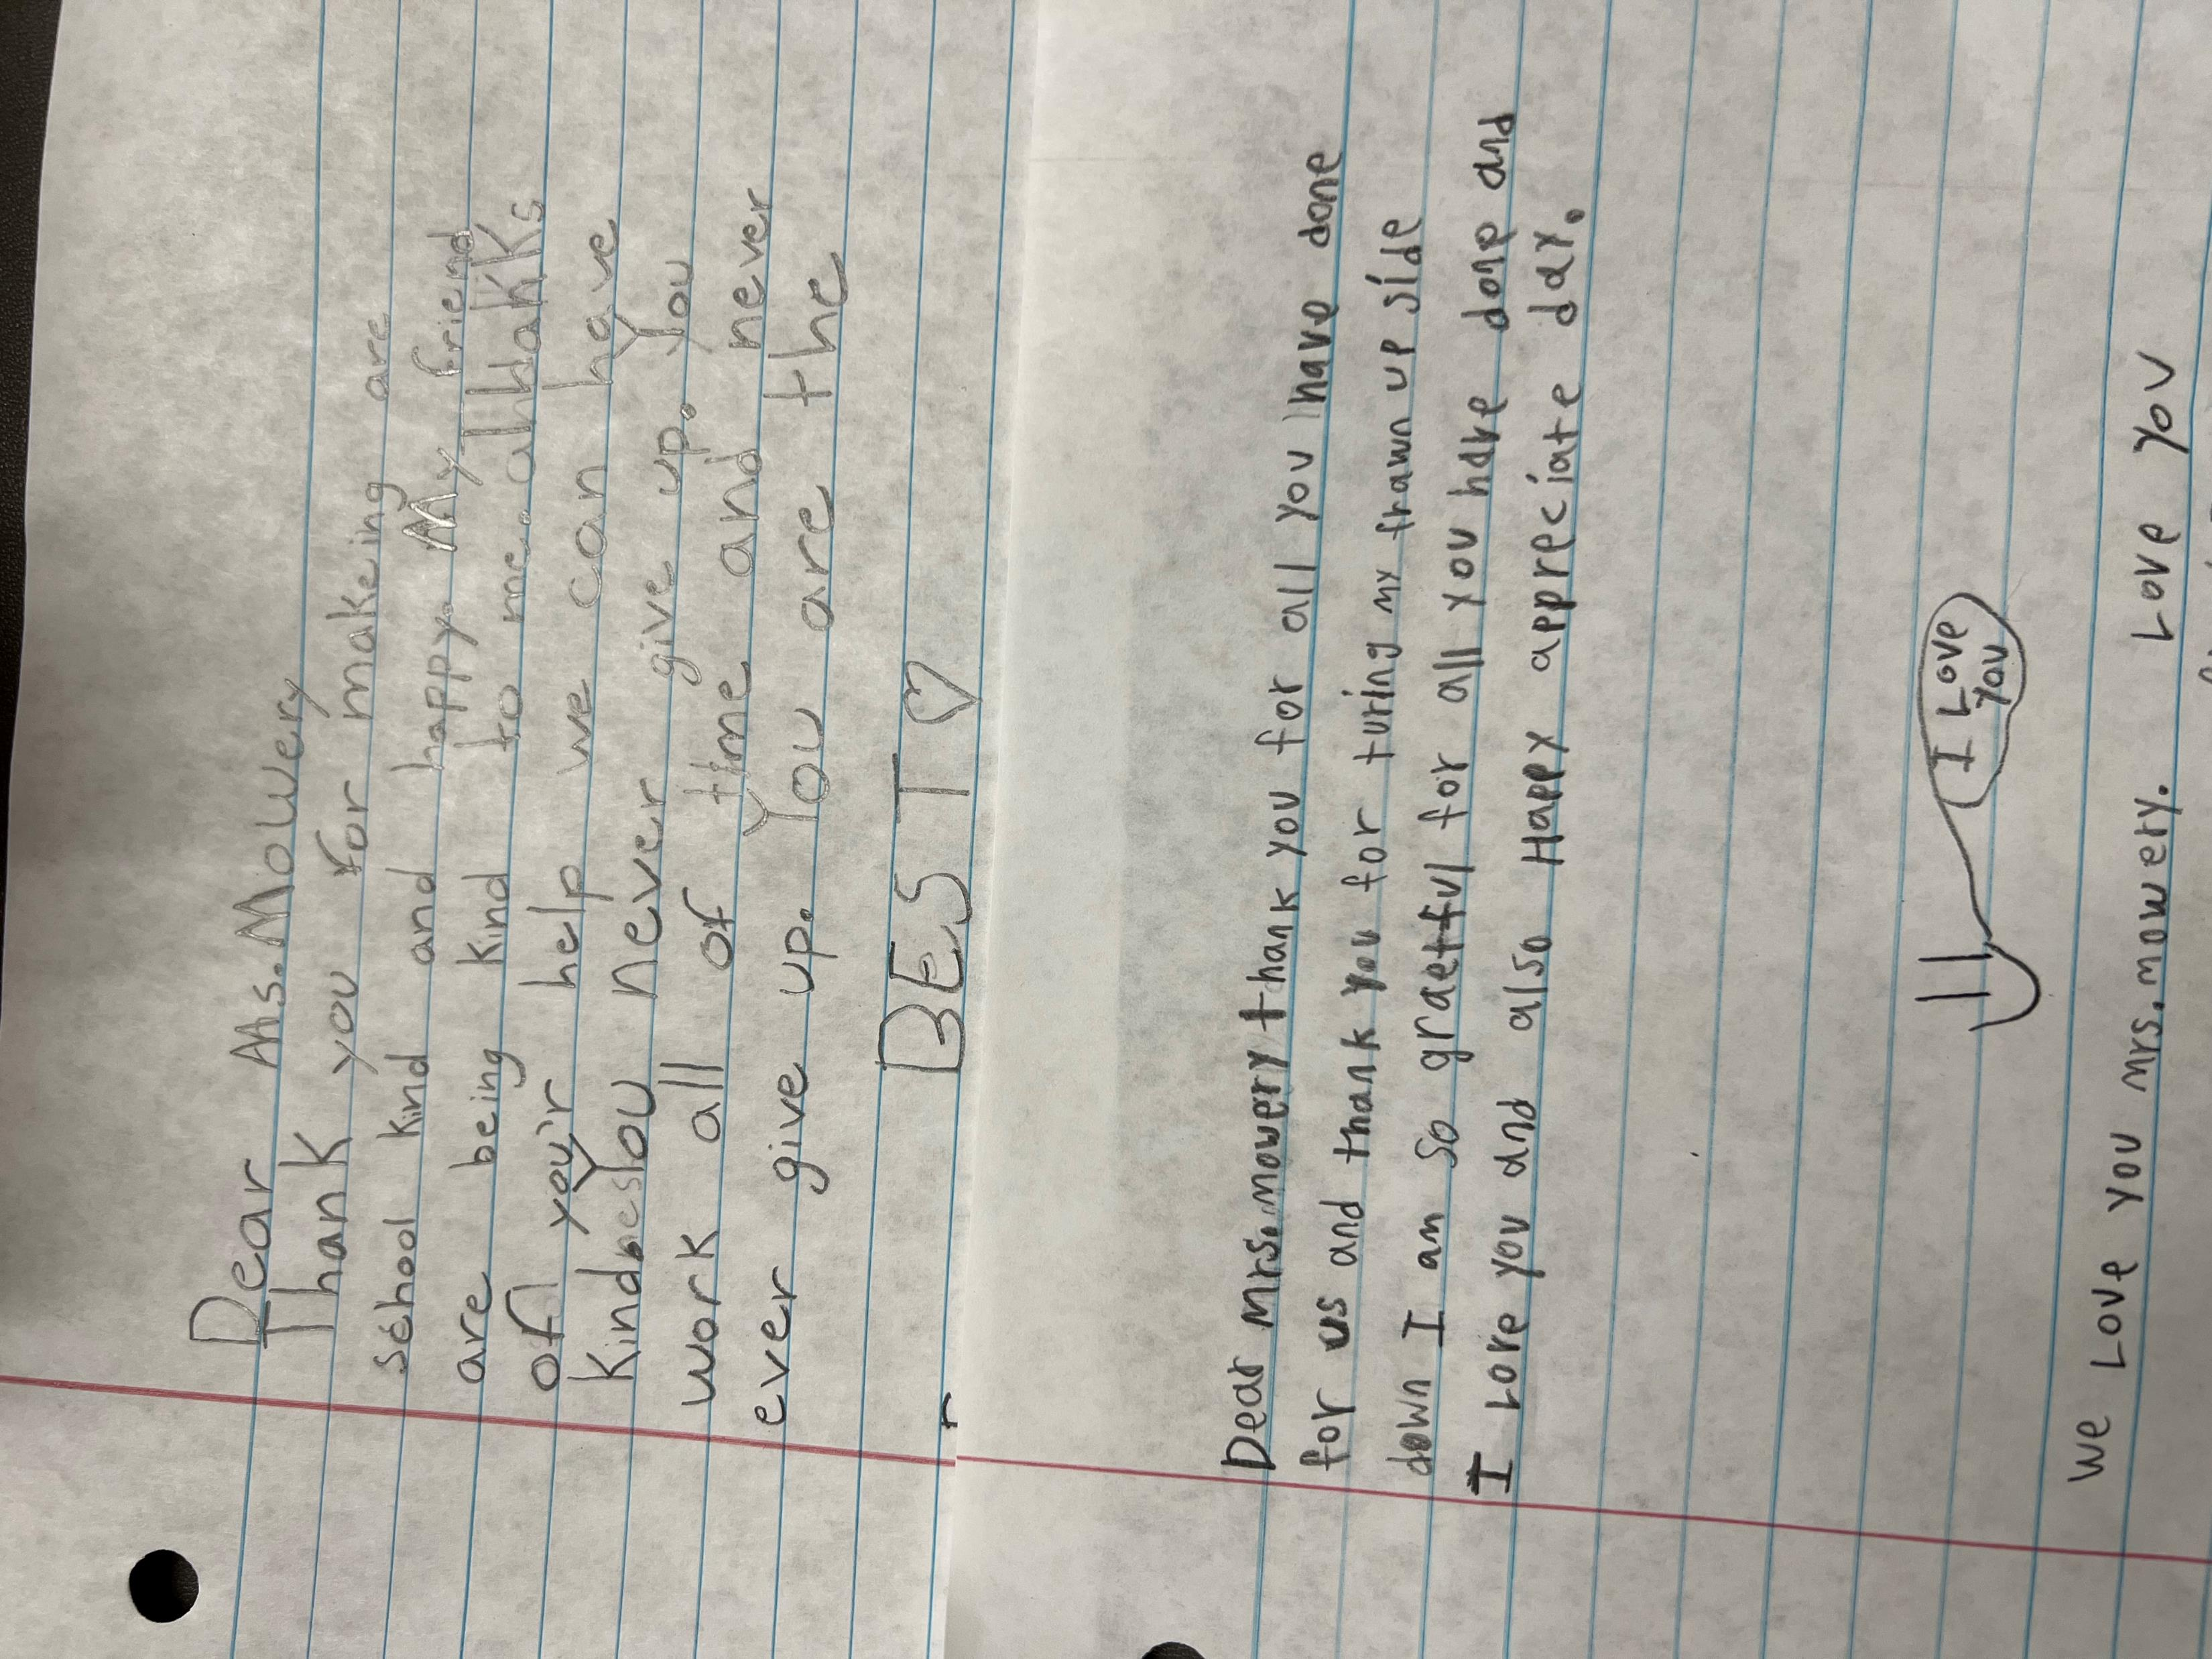 Dear Ms. Mowery
Thank you for makeing are
school kind and happy. My friend
are being kind to me. all thakks
of you'r help we can have
kindnes You never give up. You
work all of time and never
ever give up. You are the
BEST
Dear Mrs. mowery thank you for all you have done
for us and thank you for turing my frawn up side
down I am so graetful for all you have done and
I Love you and also Happy appreciate day.
I Love
you
We Love you mrs. mowery. Love you